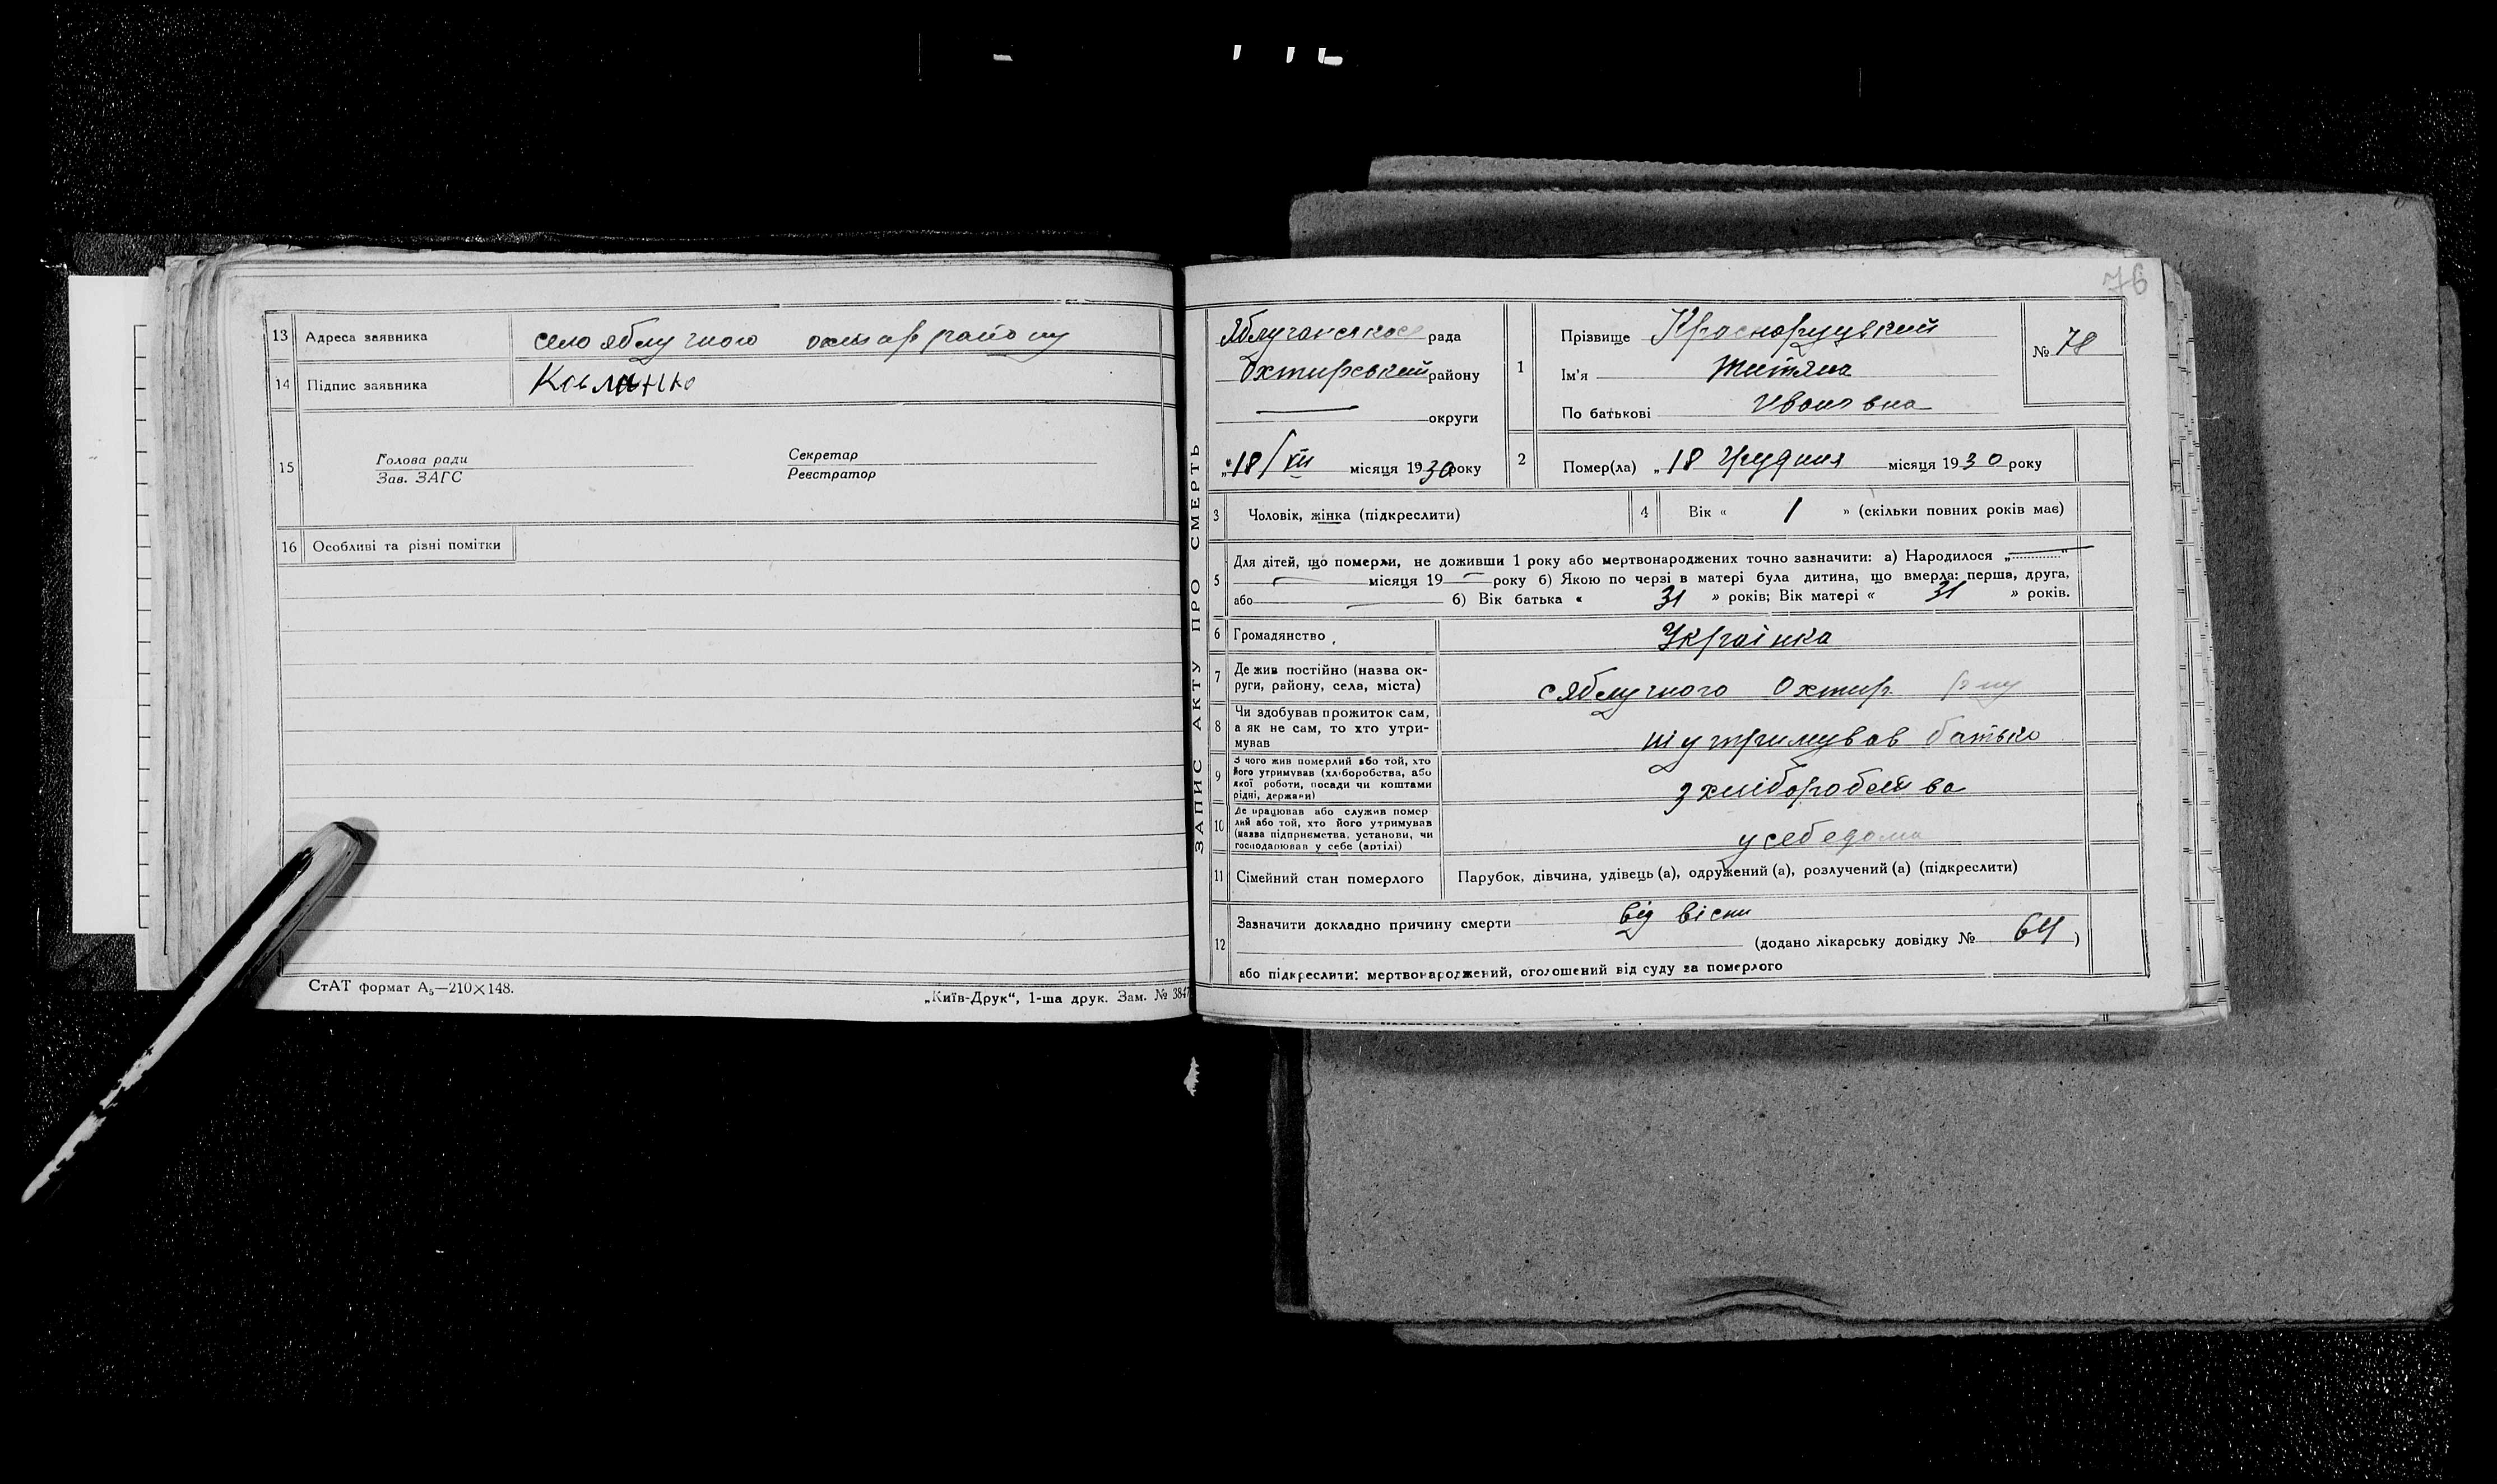 13 Адреса заявника село яблучного охтир району
14 Підпис заявника
15 Голова ради Секретар
Зав. ЗАГС Реєстратор
16 Особливі та різні помітки
СтАТ формат А₅—210×148. „Київ-Друк“, 1-ша друк. Зам. № 3847
76
ЗАПИС АКТУ ПРО СМЕРТЬ
рада
Охтирський району
округи
„18/XII місяця 1930 року
1 Прізвище
Ім'я
По батькові Ивановна
№ 78
2 Помер(ла) „18 грудня місяця 1930 року
3 Чоловік, жінка (підкреслити) 4 Вік « 1 » (скільки повних років має)
5 Для дітей, що померли, не доживши 1 року або мертвонароджених точно зазначити: а) Народилося „.............“
— місяця 19 — року б) Якою по черзі в матері була дитина, що вмерла: перша, друга,
або — б) Вік батька « 31 » років; Вік матері « 31 » років.
6 Громадянство Українка
7 Де жив постійно (назва ок-
руги, району, села, міста) с яблучного Охтир. р-ну
8 Чи здобував прожиток сам,
а як не сам, то хто утри-
мував утримував батько
9 З чого жив померлий або той, хто
його утримував (хліборобства, або
якої роботи, посади чи коштами
рідні, держави) з хліборобства
10 Де працював або служив помер
лий або той, хто його утримував
(назва підприємства, установи, чи
господарював у себе (артілі) у себе дома
11 Сімейний стан померлого Парубок, дівчина, удівець (а), одружений (а), розлучений (а) (підкреслити)
12 Зазначити докладно причину смерти від віспи
(додано лікарську довідку № 64)
або підкреслити: мертвонароджений, оголошений від суду за померлого